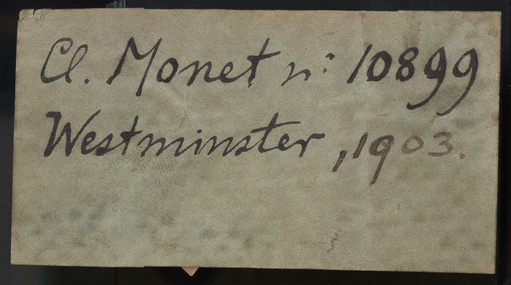 Cl. Monet n: 10899
Westminster, 1903.